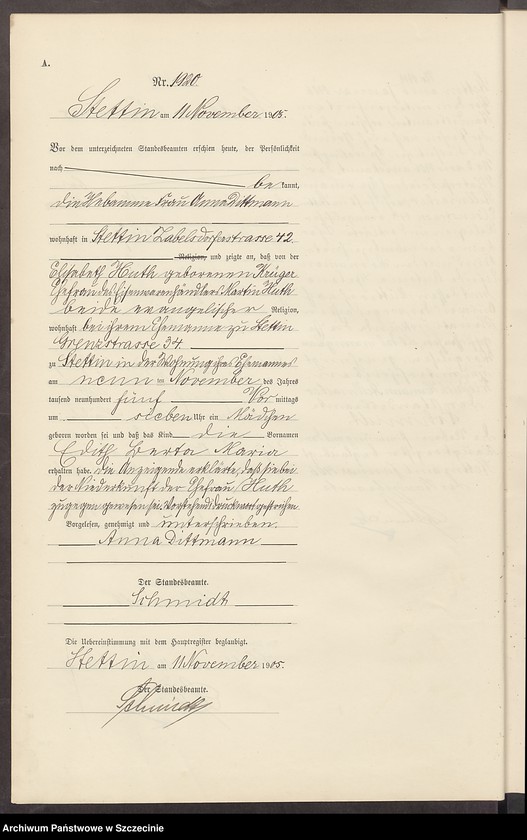 A.
Nr. 1920.
Stettin am 11 November 1905.
Vor dem unterzeichneten Standesbeamten erschien heute, der Persönlichkeit
nach
be kannt,
die Hebamme Frau Anna Dittmann
wohnhaft in Stettin Zabelsdorferstrasse 42
Religion, und zeigte an, daß von der
Elisabeth Huth geborenen Krüger
Ehefrau des Eisenwarenhändlers Martin Huth
beide evangelischer Religion,
wohnhaft bei ihrem Ehemanne zu Stettin
Grenzstrasse 34
zu Stettin in der Wohnung ihres Ehemannes
am neun ten November des Jahres
tausend neunhundert fünf Vor mittags
um sieben Uhr ein Mädchen
geboren worden sei und daß das Kind die Vornamen
Edith Herta Maria
erhalten habe. Die Anzeigende erklärte, daß sie bei
der Niederkunft der Ehefrau Huth
zugegen gewesen sei. Vorstehend 1 Druckwort gestrichen
Vorgelesen, genehmigt und unterschrieben.
Anna Dittmann
Der Standesbeamte.
Schmidt
Die Uebereinstimmung mit dem Hauptregister beglaubigt.
Stettin am 11 November 1905.
Der Standesbeamte.
Schmidt
Archiwum Państwowe w Szczecinie